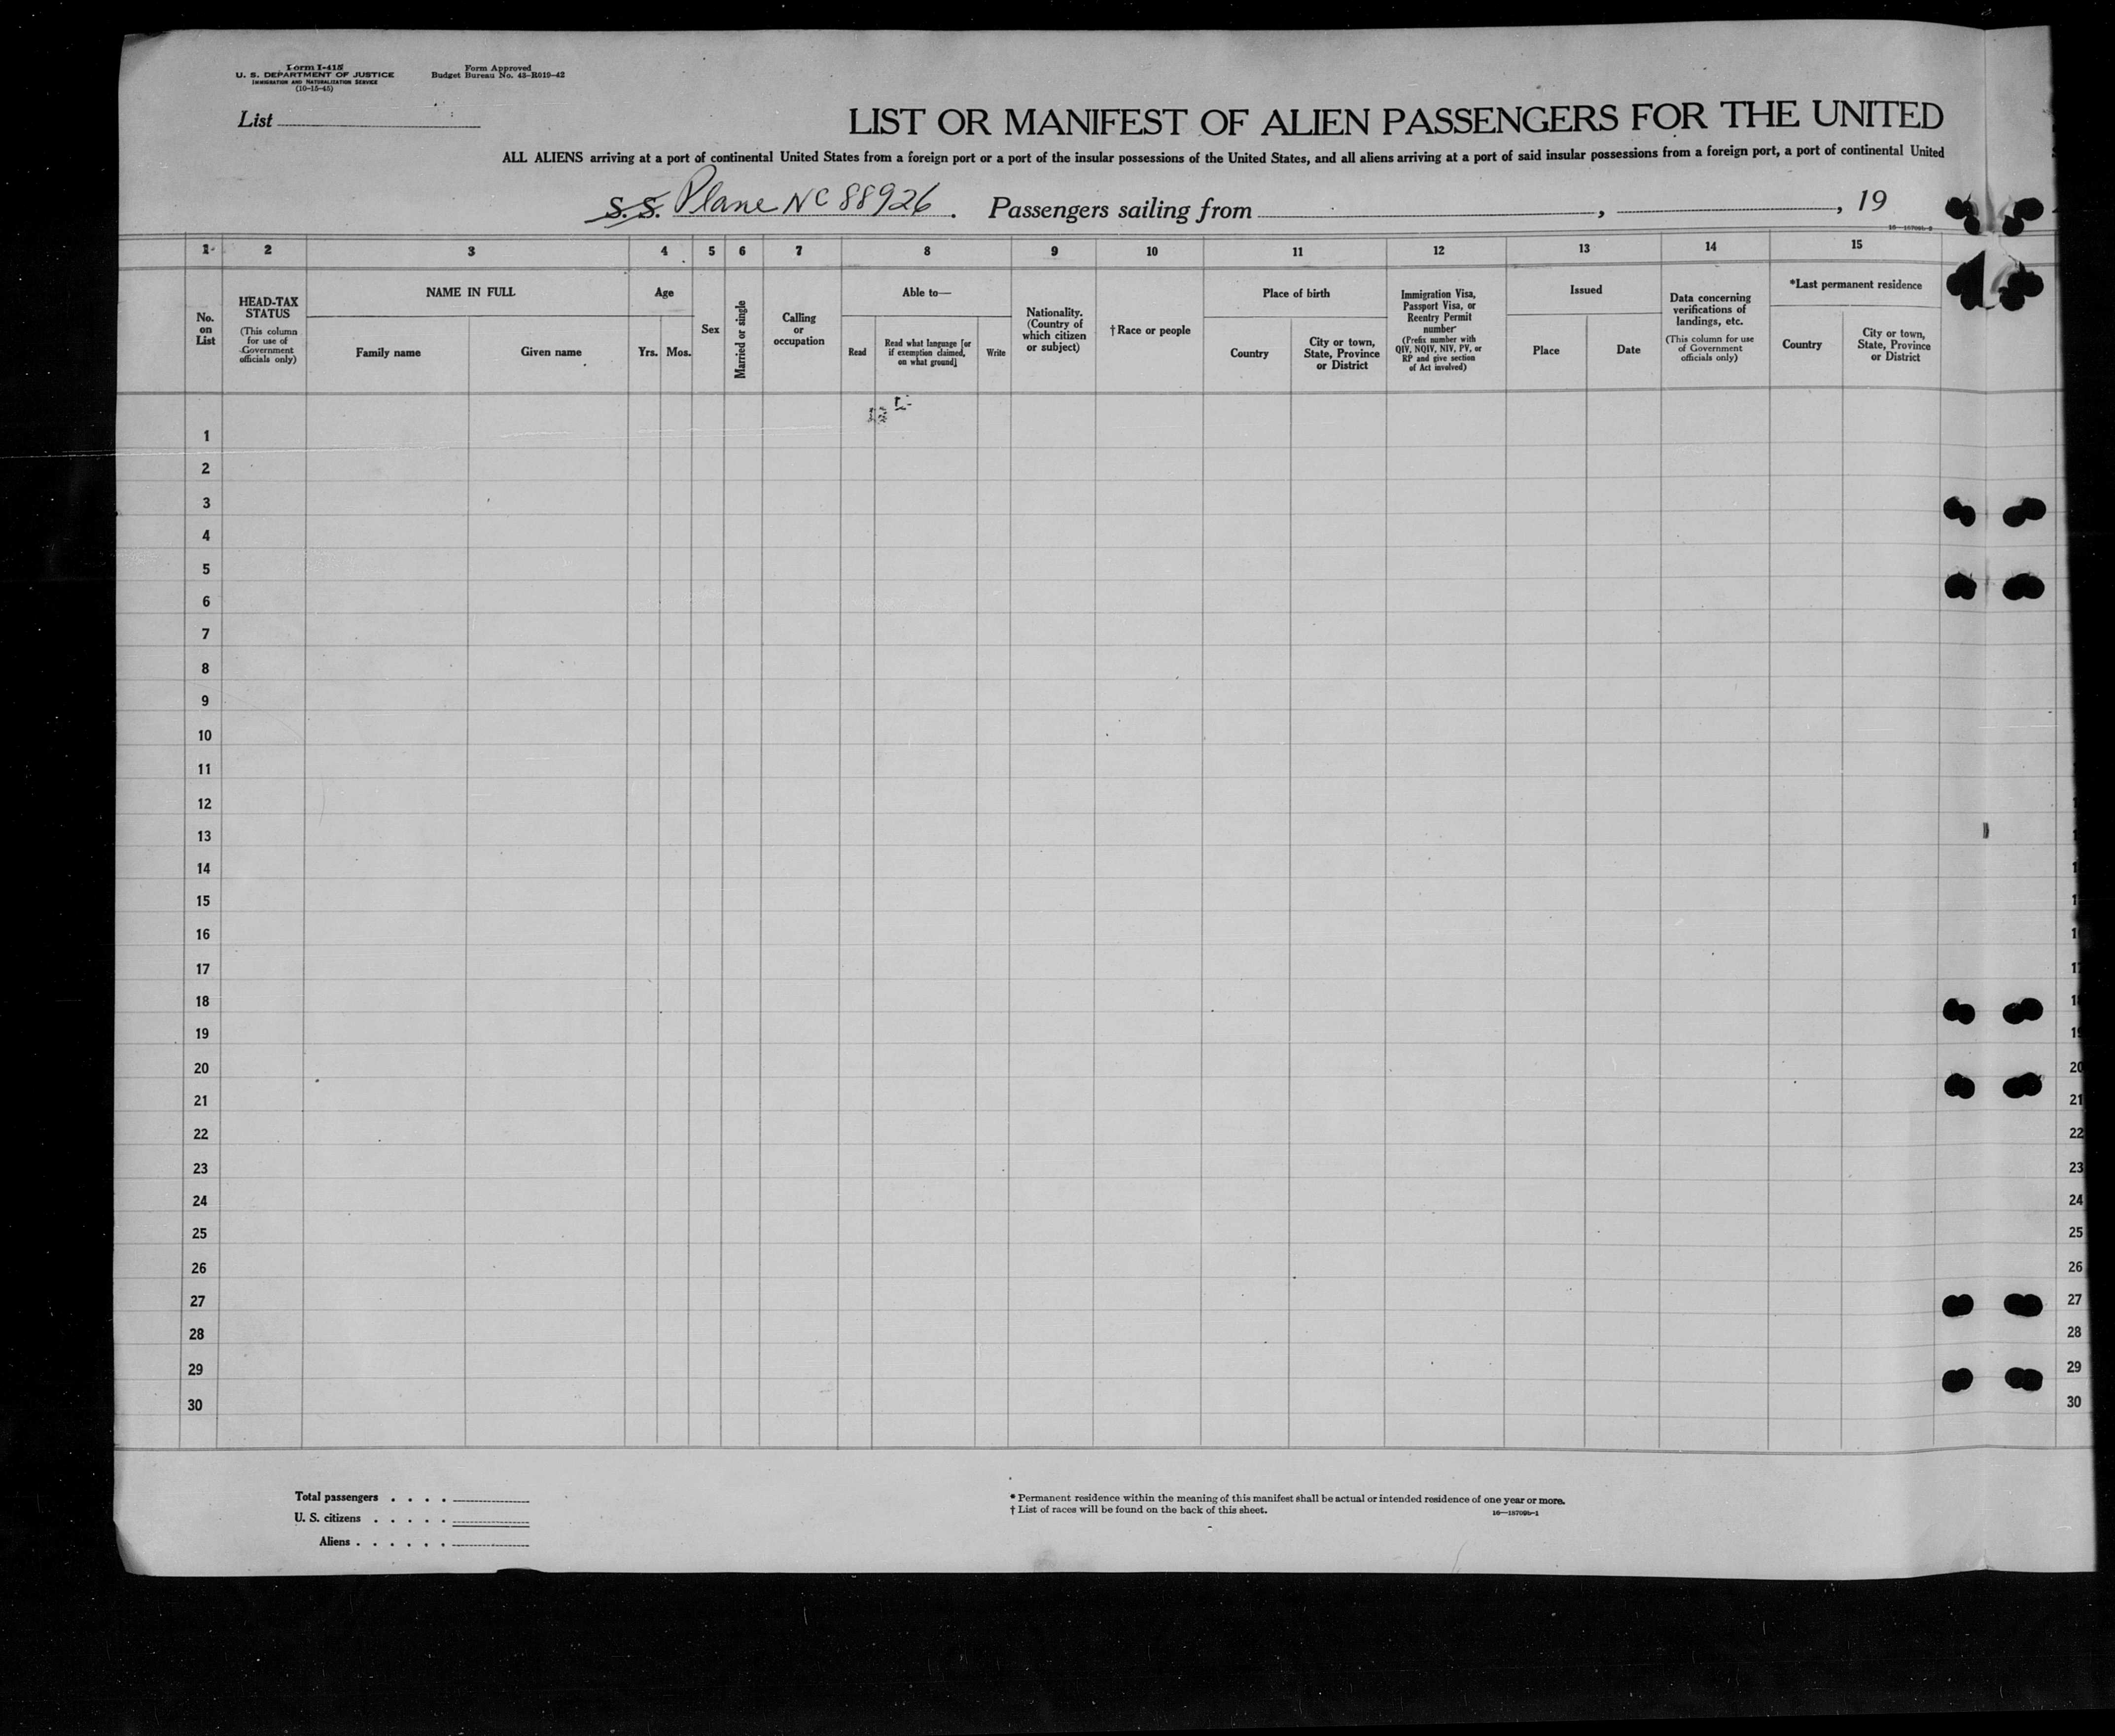 Form I-415
U. S. DEPARTMENT OF JUSTICE
IMMIGRATION AND NATURALIZATION SERVICE
(10-15-45)
Form Approved
Budget Bureau No. 43-R019-42
List
LIST OR MANIFEST OF ALIEN PASSENGERS FOR THE UNITED
ALL ALIENS arriving at a port of continental United States from a foreign port or a port of the insular possessions of the United States, and all aliens arriving at a port of said insular possessions from a foreign port, a port of continental United
S. S. Plane NC 88926. Passengers sailing from , , 19
1 2 3 4 5 6 7 8 9 10 11 12 13 14 15
No. on List
HEAD-TAX STATUS
(This column for use of Government officials only)
NAME IN FULL
Family name
Given name
Age
Yrs. Mos.
Sex
Married or single
Calling or occupation
Able to—
Read
Read what language [or if exemption claimed, on what ground]
Write
Nationality. (Country of which citizen or subject)
†Race or people
Place of birth
Country
City or town, State, Province or District
Immigration Visa, Passport Visa, or Reentry Permit number
(Prefix number with QIV, NQIV, NIV, PV, or RP and give section of Act involved)
Issued
Place
Date
Data concerning verifications of landings, etc.
(This column for use of Government officials only)
*Last permanent residence
Country
City or town, State, Province or District
1
2
3
4
5
6
7
8
9
10
11
12
13
14
15
16
17
18
19
20 20
21 21
22 22
23 23
24 24
25 25
26 26
27 27
28 28
29 29
30 30
Total passengers . . . .
U. S. citizens . . . . .
Aliens . . . . . .
* Permanent residence within the meaning of this manifest shall be actual or intended residence of one year or more.
† List of races will be found on the back of this sheet.